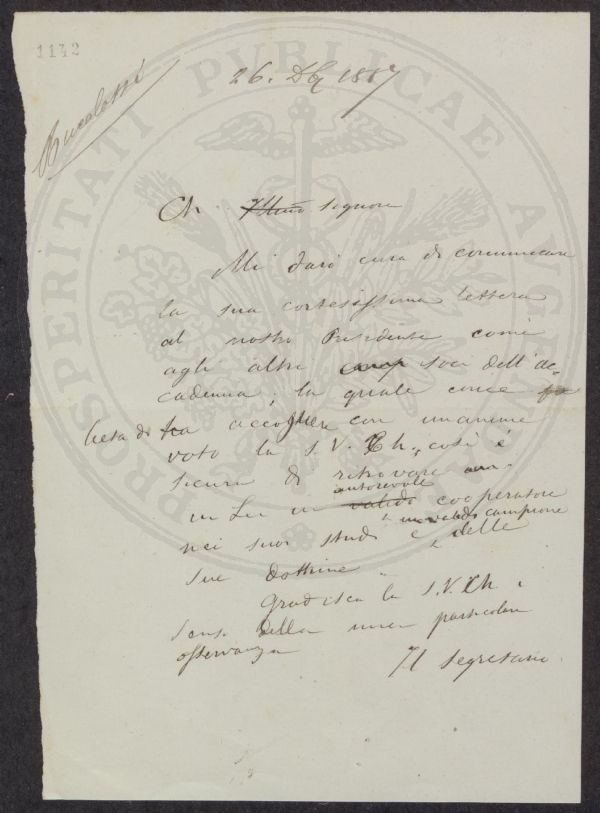 1142
Bucalossi
26. Dbr 1867
Ch. Illmo Signore
Mi darò cura di comunicare
la sua cortesissima lettera
al nostro Presidente come
agli altri comp soci dell'ac-
cademia; la quale come fu
lieta di accoglier con unanime
voto la S. V. Ch., così è
sicura di ritrovare
autorevole
in Lei un valido cooperatore
un valido campione
nei suoi studi e delle
sue dottrine.
Gradisca la S. V. Ch. i
sensi della mia particolare
osservanza
Il Segretario
PROSPERITATI PVBLICAE AVGENDAE